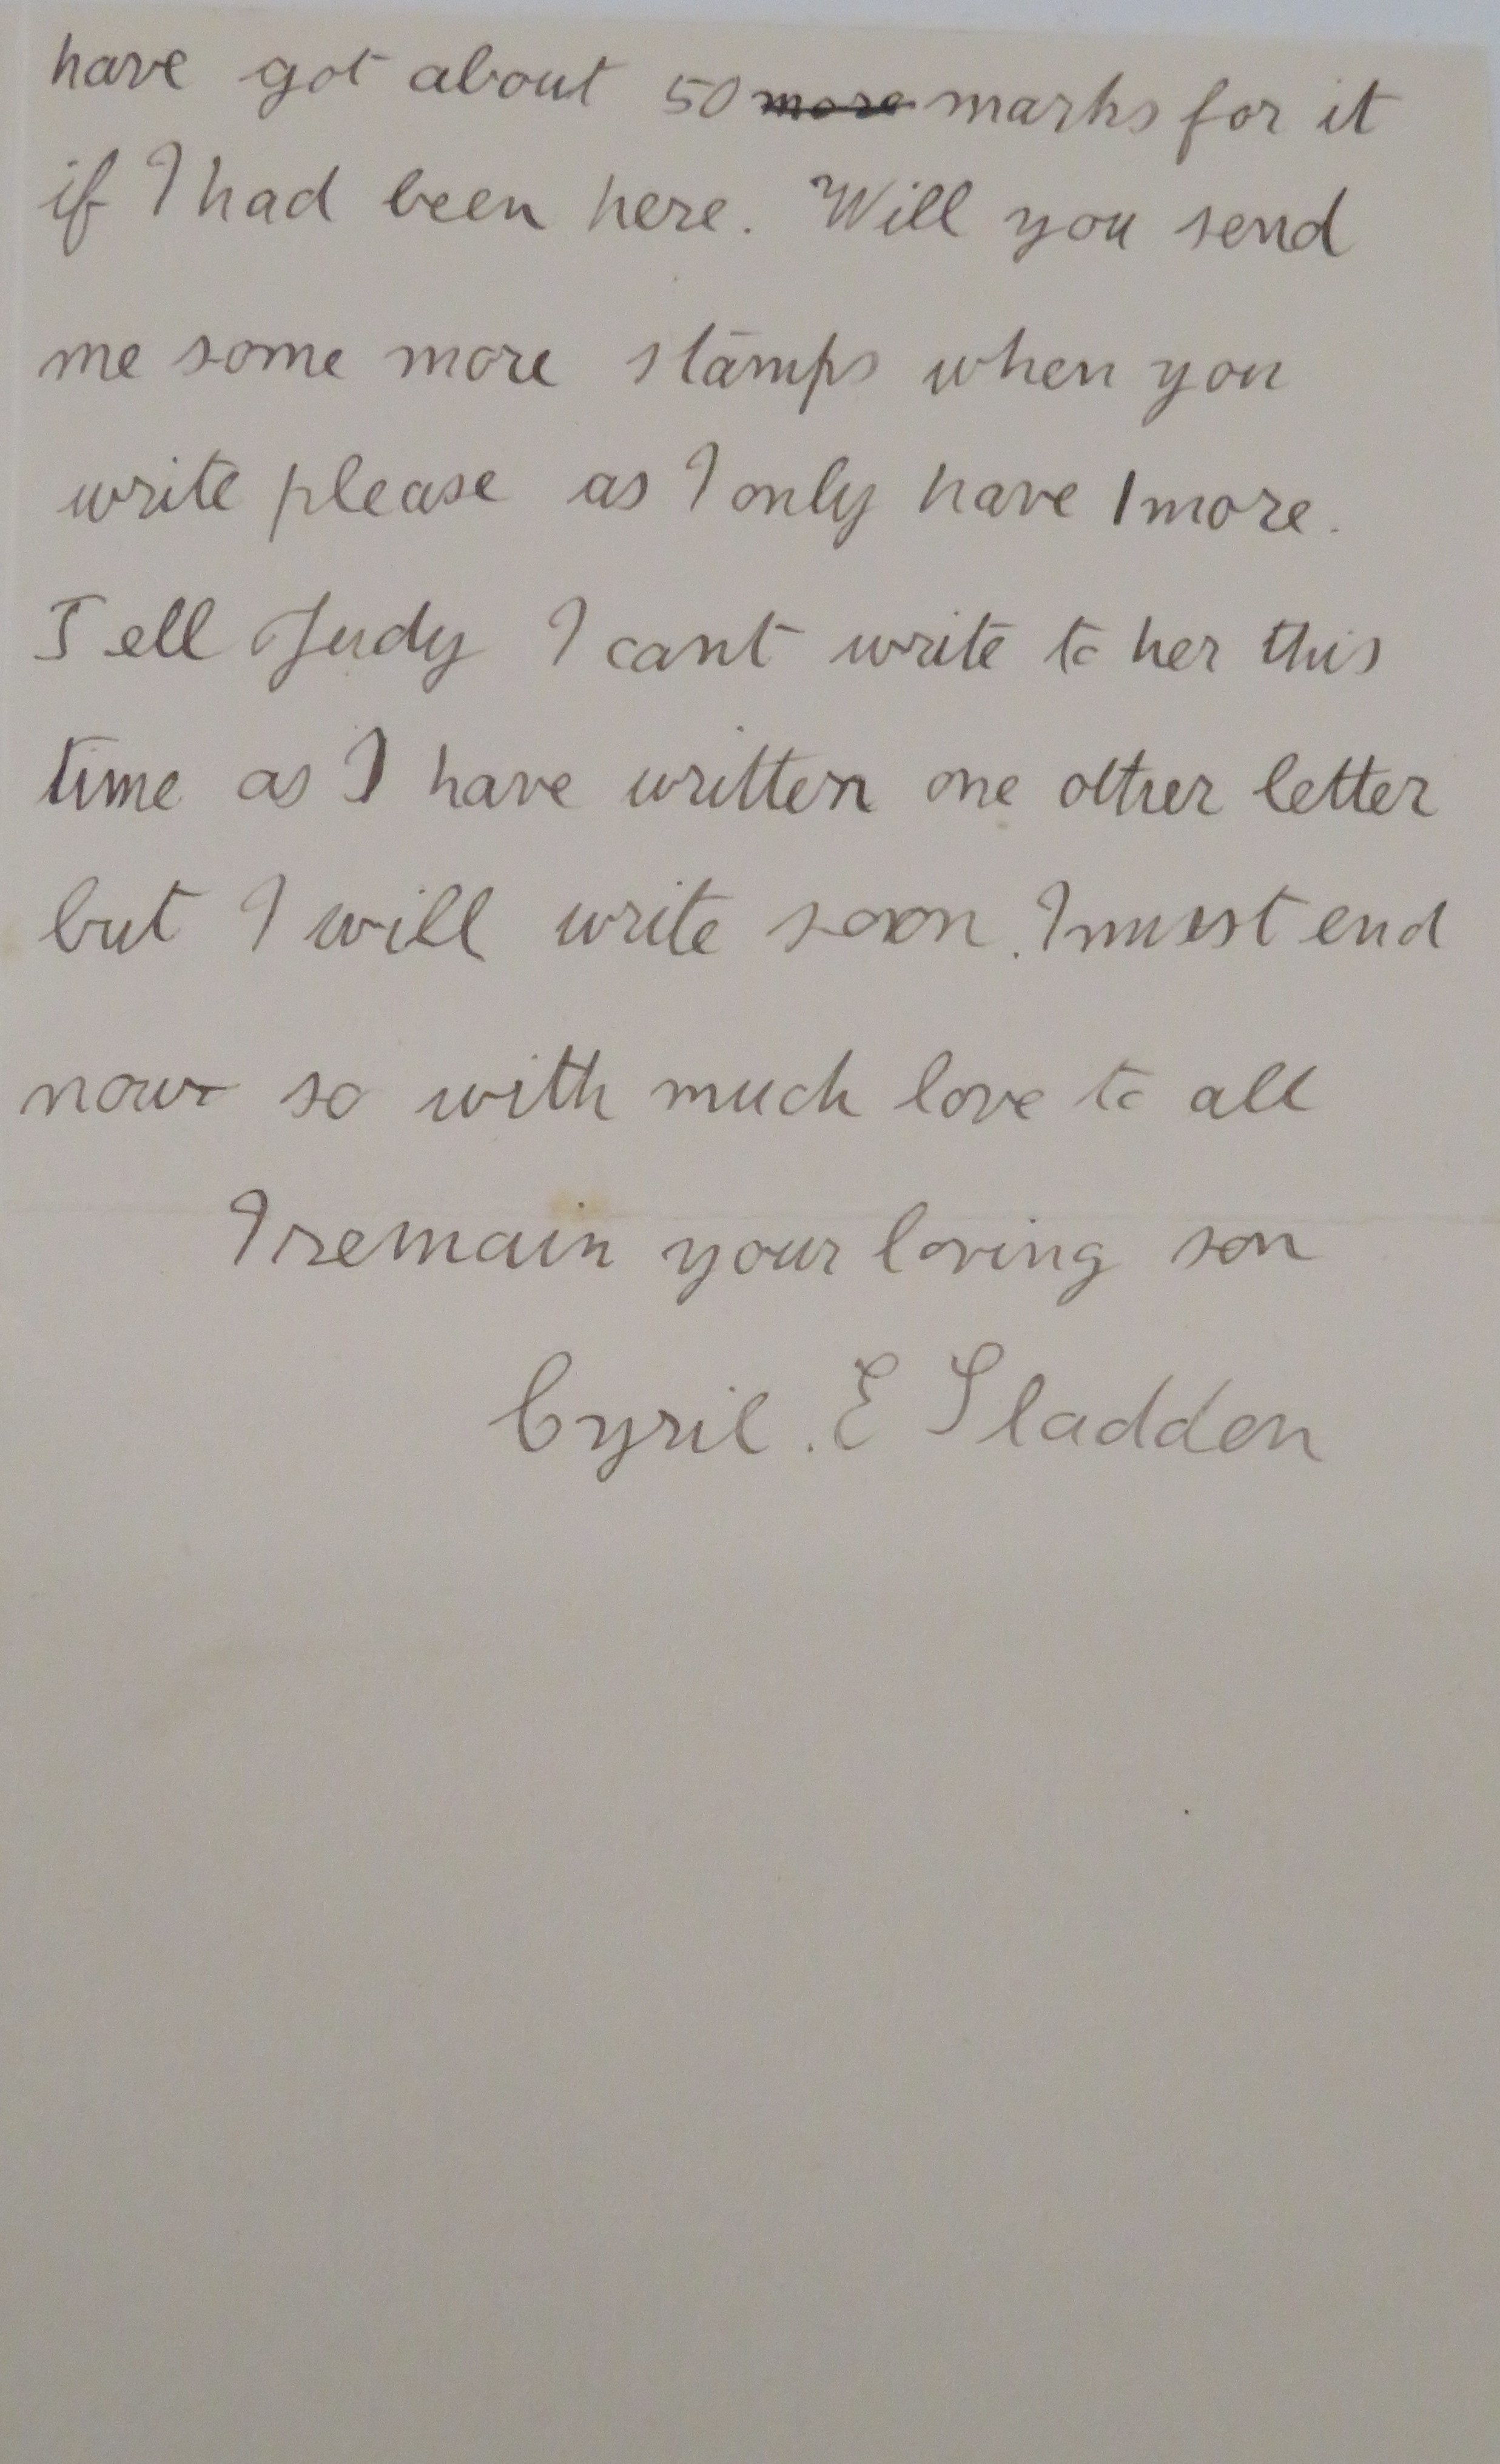 have got about 50 more marks for it
if I had been here. Will you send
me some more stamps when you
write please as I only have 1 more.
Tell Judy I cant write to her this
time as I have written one other letter
but I will write soon. I must end
now so with much love to all
I remain your loving son
Cyril. E Sladden